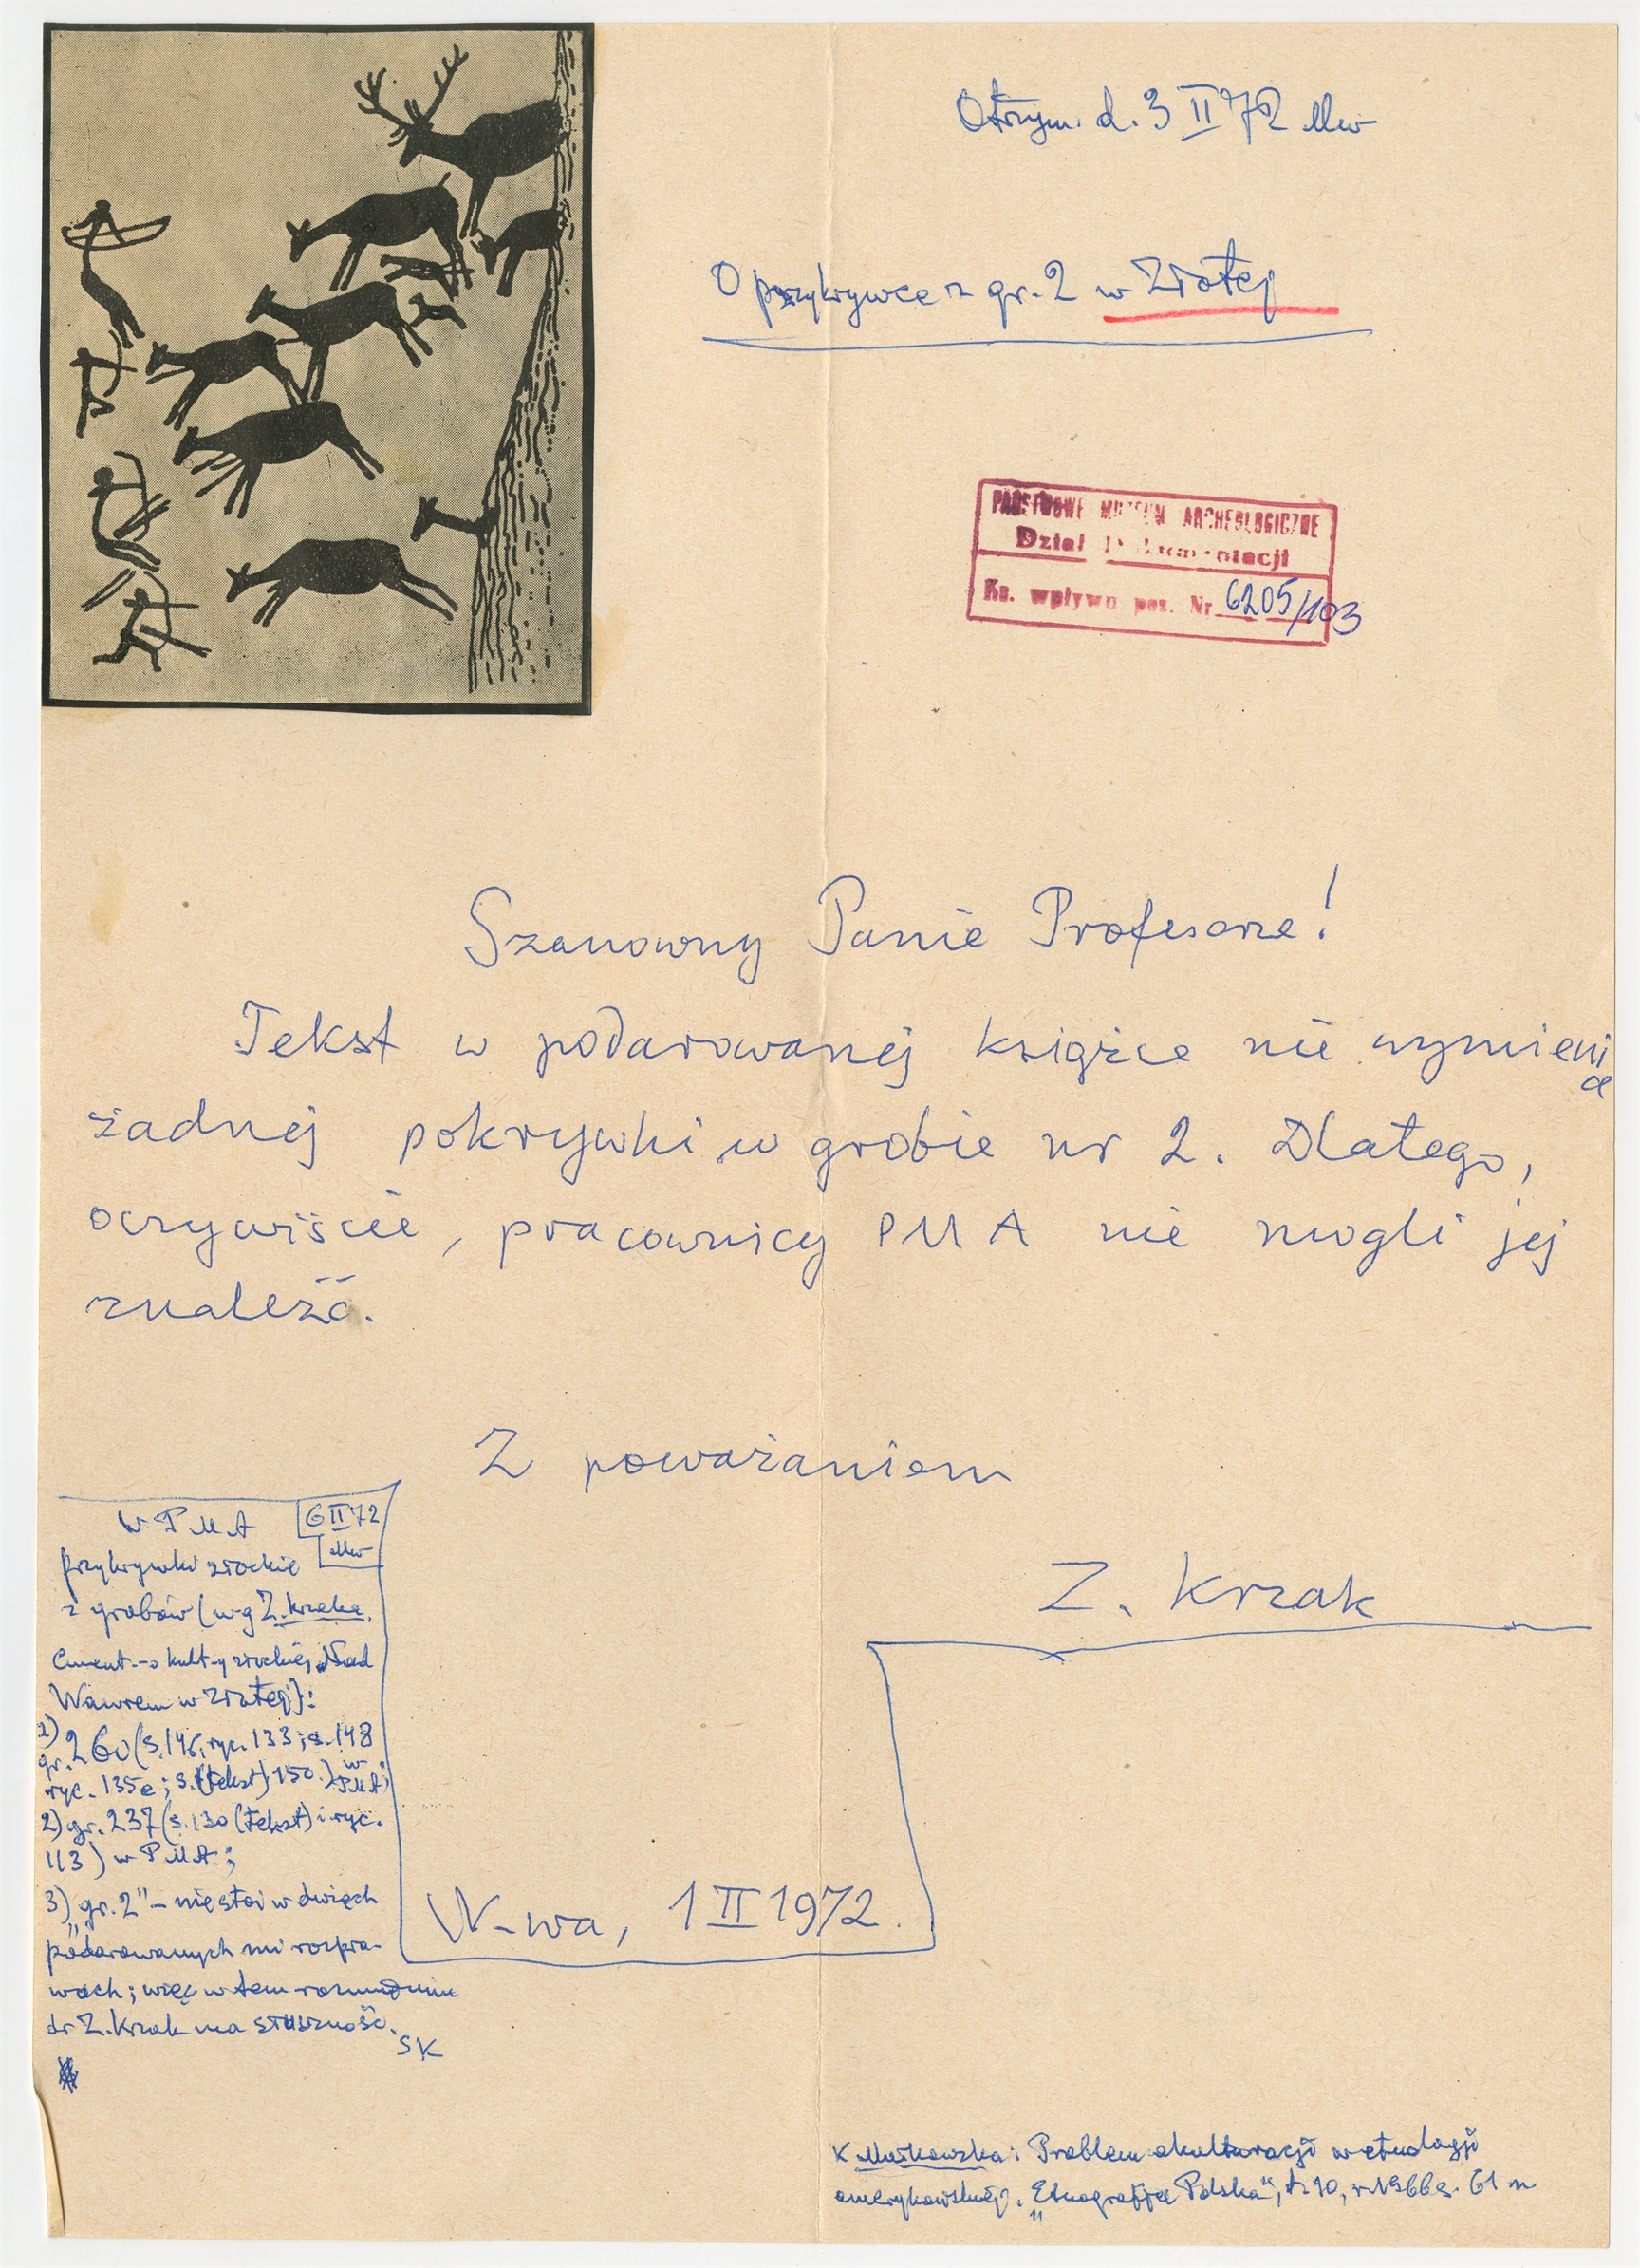 Otrzym. d. 3 II 72
O przykrywce z gr. 2 w Złotej
PAŃSTWOWE MUZEUM ARCHEOLOGICZNE
Dział Dokumentacji
Ks. wpływu poz. Nr 6205/103
Szanowny Panie Profesorze!
Tekst w podarowanej książce nie wymienia
żadnej pokrywki w grobie nr 2. Dlatego,
oczywiście, pracownicy PMA nie mogli jej
znaleźć.
Z poważaniem
Z. Krzak
W-wa, 1 II 1972.
W PMA 6 II 72
przykrywki złockie
z grobów (wg Z. Krzaka,
Cment.-o kult-y złockiej „Nad
Wawrem" w Złotej):
1) gr. 260 (s. 146, ryc. 133; s. 148
ryc. 135e; s. (tekst) 150.) w PMA;
2) gr. 237 (s. 130 (tekst) i ryc.
113) w PMA;
3) „gr. 2" – nie stoi w dwięch
podarowanych mi rozpra-
wach; więc w tem rozumieniu
dr Z. Krzak ma słuszność.
SK
K : Problem akulturacji w etnologii
amerykańskiej. „Etnografia Polska", t. 10, r. 1966 s. 61 n